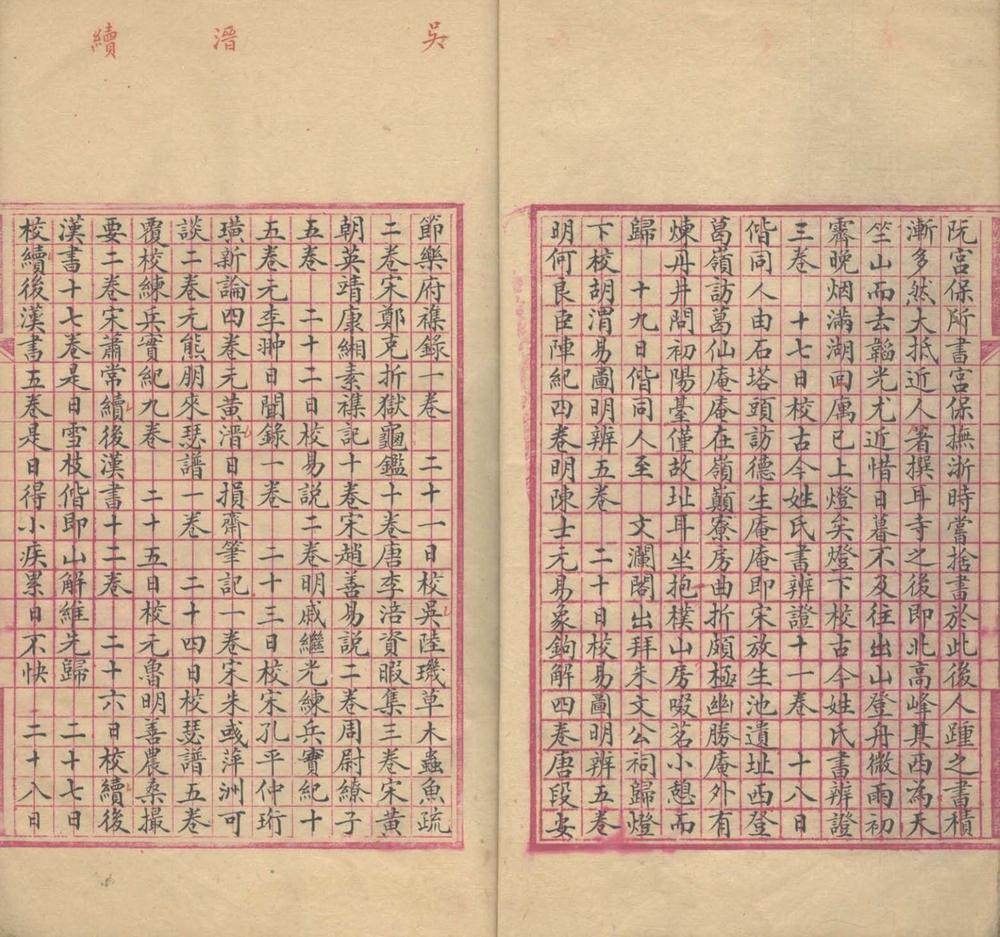 阮宫保所書宫保撫浙時嘗捨書於此後人踵之書積
漸多然大抵近人著撰耳寺之後即北高峰其西為天
竺山而去韜光尤近惜日暮不及往出山登舟微雨初
霽晚烟滿湖回寓已上燈矣燈下校古今姓氏書辨證
三卷 十七日校古今姓氏書辨證十一卷 十八日
偕同人由石塔頭訪德生庵庵即宋放生池遺址西登
葛嶺訪葛仙庵庵在嶺巔寮房曲折頗極幽勝庵外有
煉丹井問初陽臺僅故址耳坐抱樸山房啜茗小憩而
歸 十九日偕同人至 文瀾閣出拜朱文公祠歸燈
下校胡渭易圖明辨五卷 二十日校易圖明辨五卷
明何良臣陣紀四卷明陳士元易象鉤解四卷唐段安
吳 溍 續
節樂府襍錄一卷 二十一日校吳陸璣草木蟲魚疏
二卷宋鄭克折獄龜鑑十卷唐李涪資暇集三卷宋黄
朝英靖康緗素襍記十卷宋趙善易説二卷周尉繚子
五卷 二十二日校易説二卷明戚繼光練兵實紀十
五卷元李翀日聞錄一卷 二十三日校宋孔平仲珩
璜新論四卷元黄溍日損齋筆記一卷宋朱彧萍洲可
談二卷元熊朋來瑟譜一卷 二十四日校瑟譜五卷
覆校練兵實紀九卷 二十五日校元魯明善農桑撮
要二卷宋蕭常續後漢書十二卷 二十六日校續後
漢書十七卷是日雪枝偕即山解維先歸 二十七日
校續後漢書五卷是日得小疾累日不快 二十八日